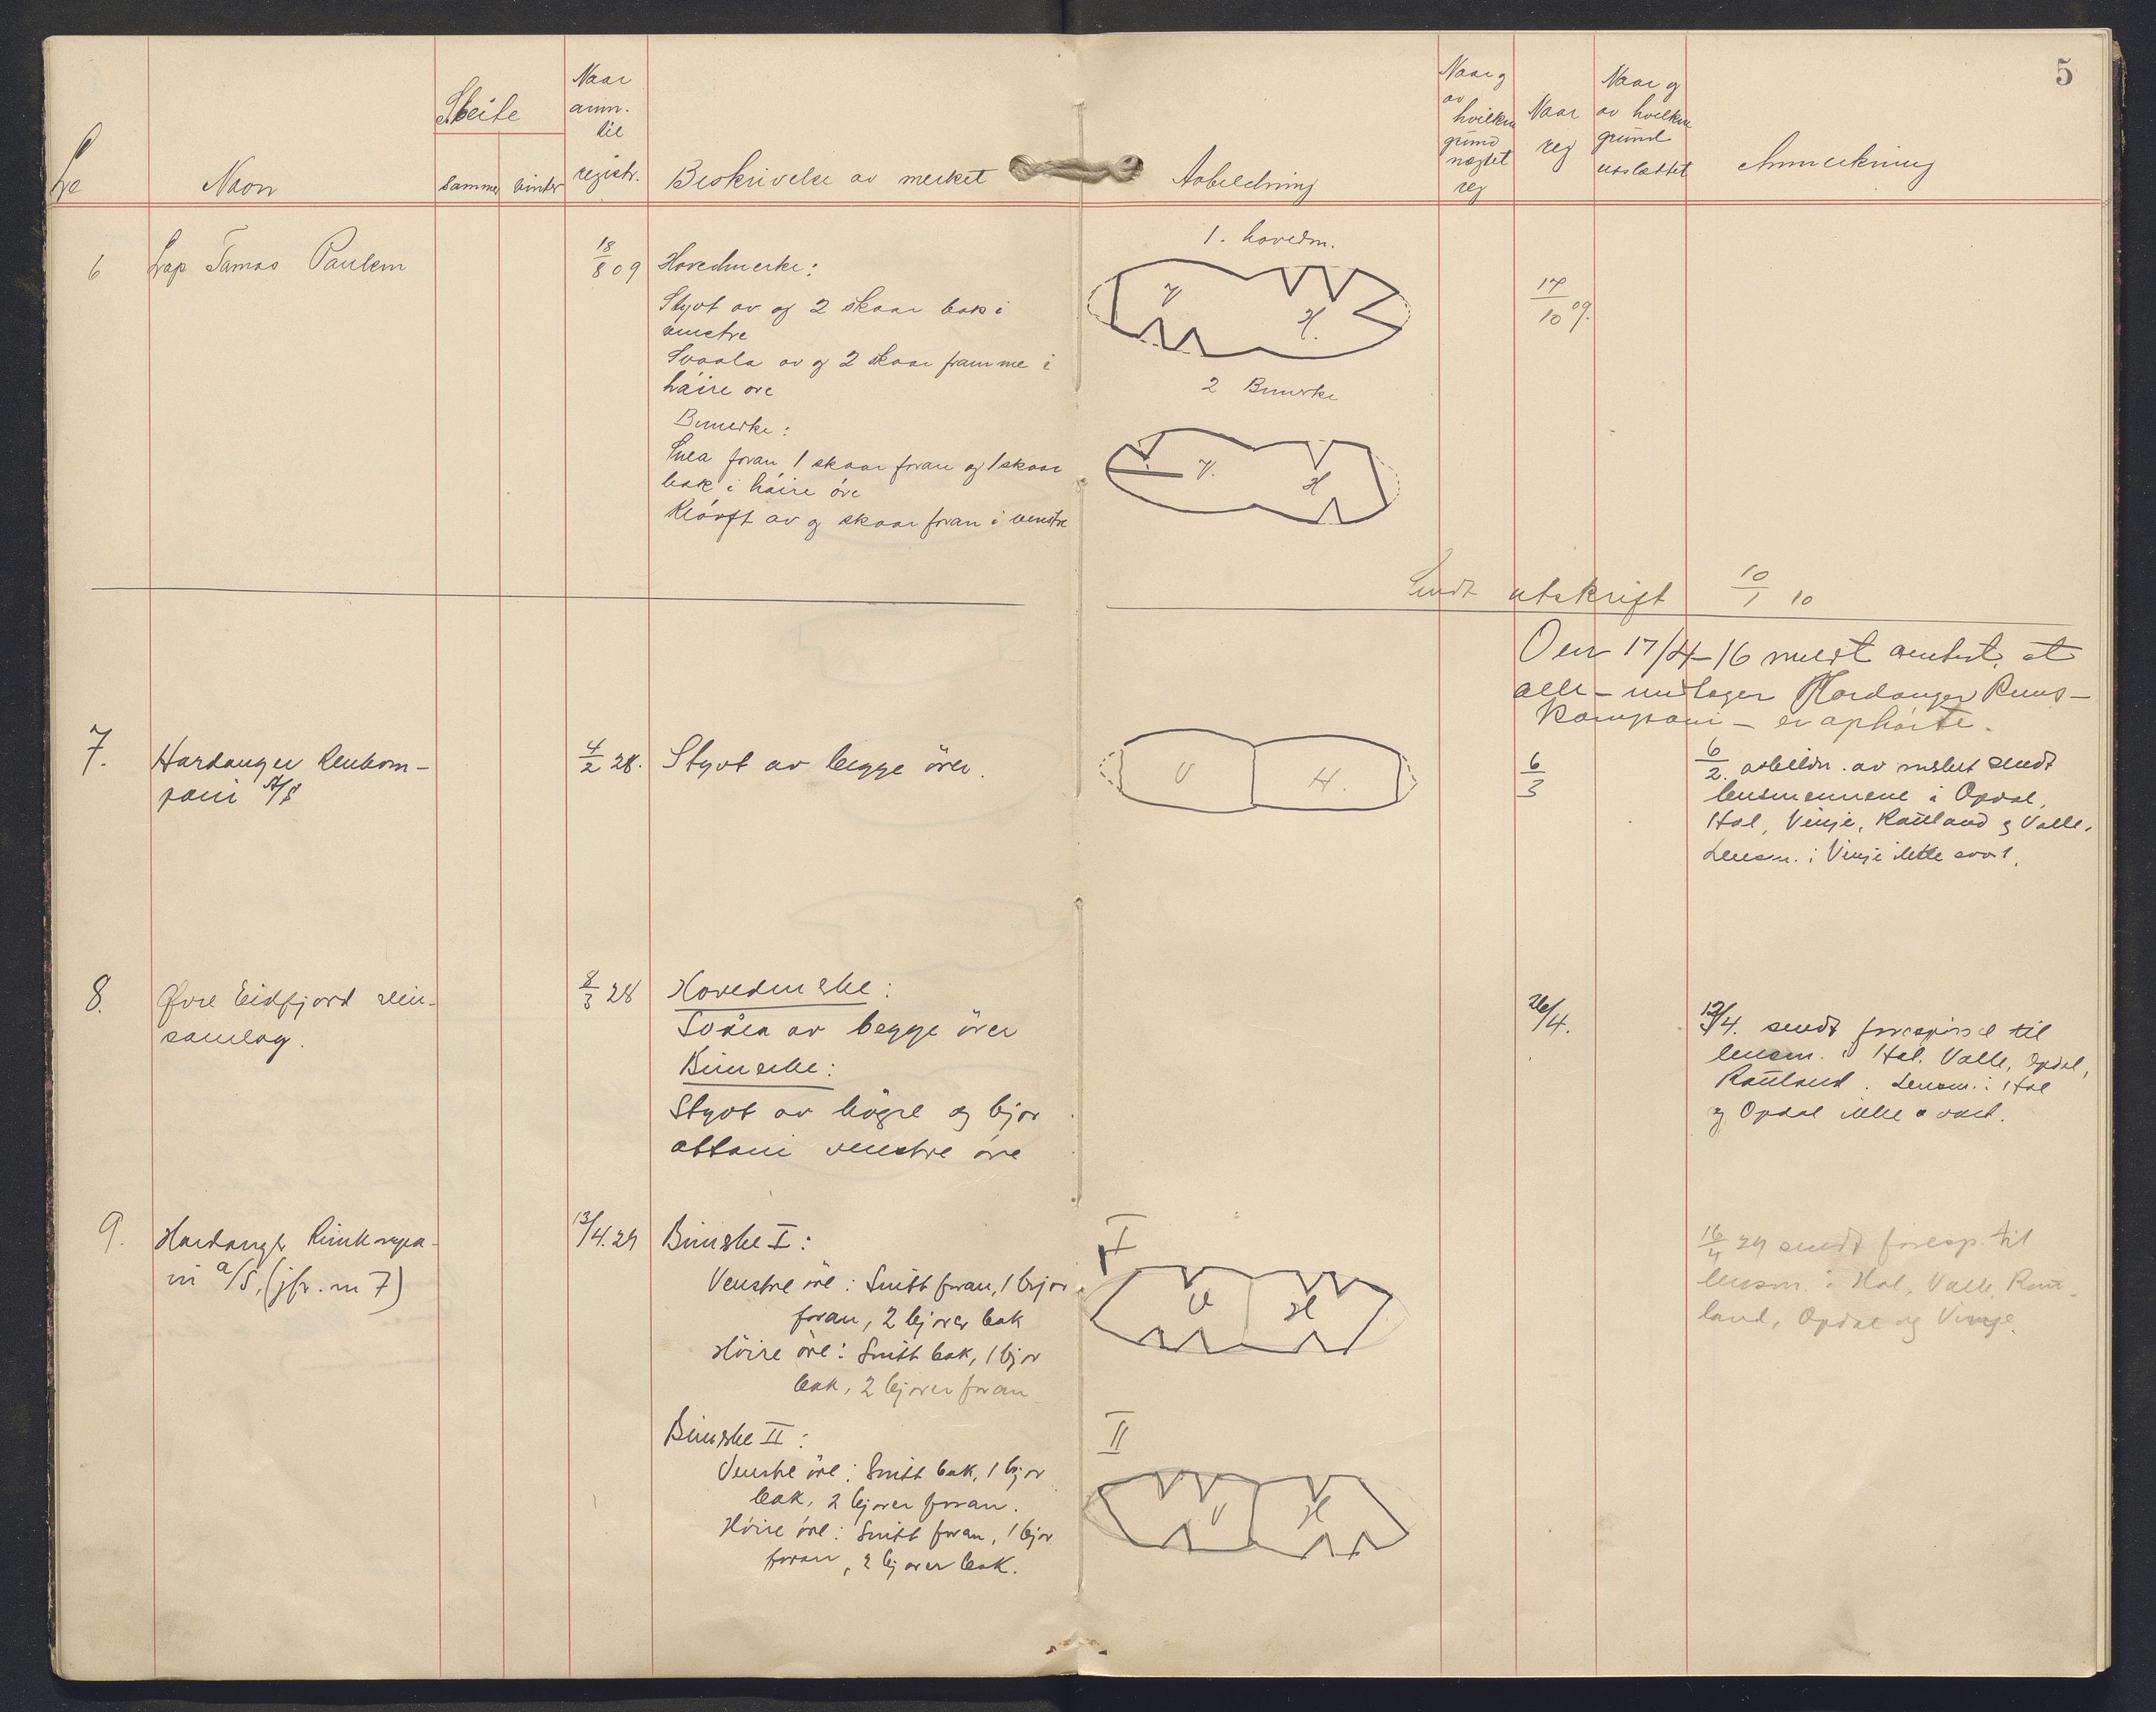 5
Lp
Navn
Beite
sommer
vinter
Naar
anm.
til
registr.
Beskrivelse av merket
Avbildning
Naar og
av
hvilken
grund
nægtet
reg
Naar
reg
Naar og
av hvilken
grund
utslættet
Anmerkning
6
Lap Tamas Paulsen
18/8 09
Hovedmerke:
Styvt av og 2 skaar bak i
venstre
Svaala av og 2 skaar framme i
høire øre
Bimerke:
foran 1 skaar foran og 1 skaar
bak i høire øre
Kløvft av og skaar foran i venstre
1. hovedm.
V
H.
2 Bimerke
V.
H
17/10 09.
Sendt utskrift 10/1 10
Den 17/4-16 meldt amtet, at
alle
Hardanger Rens-
kompani – er ophørte.
7.
Hardanger Renkom-
pani A/S
4/2 28.
Styvt av begge ører.
V
H.
6/3
6/2. avbildn. av merket sendt
lensmennene i Opdal,
Hol, Vinje, Rauland og Valle.
Lensm. i Vinje ikke svart.
8.
Øvre Eidfjord rein-
samlag.
8/3 28
Hovedmerke:
av begge ører
Bimerke:
Styvt av høgre og bjor
attani venstre øre
26/4.
12/4. sendt forespørsel til
lensm. i Hol, Valle, Opdal,
Rauland. Lensm. i Hol
og Opdal ikke svart.
9.
Hardanger Rinkompa-
ni a/S, (jfr. nr 7)
13/4.29
Bimerke I:
Venstre øre: Snitt foran, 1 bjor
foran, 2 bjorer bak
Høire øre: Snitt bak, 1 bjor
bak, 2 bjorer foran
Bimerke II:
Venstre øre: Snitt bak, 1 bjor
bak, 2 bjorer foran.
Høire øre: Snitt foran, 1 bjor
foran, 2 bjorer bak.
I
V
H
II
V
H
16/4 29 sendt foresp. til
lensm. i Hol, Valle, Rau-
land, Opdal og Vinje.